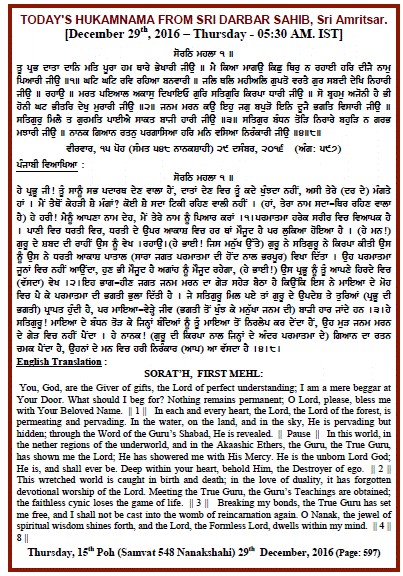 TODAY'S HUKAMNAMA FROM SRI DARBAR SAHIB, Sri Amritsar.
[December 29th, 2016 – Thursday - 05:30 AM. IST]
ਸੋਰਠਿ ਮਹਲਾ ੧ ॥
ਤੂ ਪ੍ਰਭ ਦਾਤਾ ਦਾਨਿ ਮਤਿ ਪੂਰਾ ਹਮ ਥਾਰੇ ਭੇਖਾਰੀ ਜੀਉ ॥ ਮੈ ਕਿਆ ਮਾਗਉ ਕਿਛੁ ਥਿਰੁ ਨ ਰਹਾਈ ਹਰਿ ਦੀਜੈ ਨਾਮੁ
ਪਿਆਰੀ ਜੀਉ ॥੧॥ ਘਟਿ ਘਟਿ ਰਵਿ ਰਹਿਆ ਬਨਵਾਰੀ ॥ ਜਲਿ ਥਲਿ ਮਹੀਅਲਿ ਗੁਪਤੋ ਵਰਤੈ ਗੁਰ ਸਬਦੀ ਦੇਖਿ ਨਿਹਾਰੀ
ਜੀਉ ॥ ਰਹਾਉ ॥ ਮਰਤ ਪਇਆਲ ਅਕਾਸੁ ਦਿਖਾਇਓ ਗੁਰਿ ਸਤਿਗੁਰਿ ਕਿਰਪਾ ਧਾਰੀ ਜੀਉ ॥ ਸੋ ਬ੍ਰਹਮੁ ਅਜੋਨੀ ਹੈ ਭੀ
ਹੋਨੀ ਘਟ ਭੀਤਰਿ ਦੇਖੁ ਮੁਰਾਰੀ ਜੀਉ ॥੨॥ ਜਨਮ ਮਰਨ ਕਉ ਇਹੁ ਜਗੁ ਬਪੁੜੋ ਇਨਿ ਦੂਜੈ ਭਗਤਿ ਵਿਸਾਰੀ ਜੀਉ ॥
ਸਤਿਗੁਰੁ ਮਿਲੈ ਤ ਗੁਰਮਤਿ ਪਾਈਐ ਸਾਕਤ ਬਾਜੀ ਹਾਰੀ ਜੀਉ ॥੩॥ ਸਤਿਗੁਰ ਬੰਧਨ ਤੋੜਿ ਨਿਰਾਰੇ ਬਹੁੜਿ ਨ ਗਰਭ
ਮਝਾਰੀ ਜੀਉ ॥ ਨਾਨਕ ਗਿਆਨ ਰਤਨੁ ਪਰਗਾਸਿਆ ਹਰਿ ਮਨਿ ਵਸਿਆ ਨਿਰੰਕਾਰੀ ਜੀਉ ॥੪॥੮॥
ਵੀਰਵਾਰ, ੧੫ ਪੋਹ (ਸੰਮਤ ੫੪੮ ਨਾਨਕਸ਼ਾਹੀ) ੨੯ ਦਸੰਬਰ, ੨੦੧੬ (ਅੰਗ: ੫੯੭)
ਪੰਜਾਬੀ ਵਿਆਖਿਆ :
ਸੋਰਠਿ ਮਹਲਾ ੧ ॥
ਹੇ ਪ੍ਰਭੂ ਜੀ! ਤੂੰ ਸਾਨੂੰ ਸਭ ਪਦਾਰਥ ਦੇਣ ਵਾਲਾ ਹੈਂ, ਦਾਤਾਂ ਦੇਣ ਵਿਚ ਤੂੰ ਕਦੇ ਖੁੰਝਦਾ ਨਹੀਂ, ਅਸੀ ਤੇਰੇ (ਦਰ ਦੇ) ਮੰਗਤੇ
ਹਾਂ । ਮੈਂ ਤੈਥੋਂ ਕੇਹੜੀ ਸ਼ੈ ਮੰਗਾਂ? ਕੋਈ ਸ਼ੈ ਸਦਾ ਟਿਕੀ ਰਹਿਣ ਵਾਲੀ ਨਹੀਂ । (ਹਾਂ, ਤੇਰਾ ਨਾਮ ਸਦਾ-ਥਿਰ ਰਹਿਣ ਵਾਲਾ
ਹੈ) ਹੇ ਹਰੀ! ਮੈਨੂੰ ਆਪਣਾ ਨਾਮ ਦੇਹ, ਮੈਂ ਤੇਰੇ ਨਾਮ ਨੂੰ ਪਿਆਰ ਕਰਾਂ ।੧।ਪਰਮਾਤਮਾ ਹਰੇਕ ਸਰੀਰ ਵਿਚ ਵਿਆਪਕ ਹੈ
। ਪਾਣੀ ਵਿਚ ਧਰਤੀ ਵਿਚ, ਧਰਤੀ ਦੇ ਉਪਰ ਆਕਾਸ਼ ਵਿਚ ਹਰ ਥਾਂ ਮੌਜੂਦ ਹੈ ਪਰ ਲੁਕਿਆ ਹੋਇਆ ਹੈ । (ਹੇ ਮਨ!)
ਗੁਰੂ ਦੇ ਸ਼ਬਦ ਦੀ ਰਾਹੀਂ ਉਸ ਨੂੰ ਵੇਖ ।ਰਹਾਉ।(ਹੇ ਭਾਈ! ਜਿਸ ਮਨੁੱਖ ਉੱਤੇ) ਗੁਰੂ ਨੇ ਸਤਿਗੁਰੂ ਨੇ ਕਿਰਪਾ ਕੀਤੀ ਉਸ
ਨੂੰ ਉਸ ਨੇ ਧਰਤੀ ਆਕਾਸ਼ ਪਾਤਾਲ (ਸਾਰਾ ਜਗਤ ਪਰਮਾਤਮਾ ਦੀ ਹੋਂਦ ਨਾਲ ਭਰਪੂਰ) ਵਿਖਾ ਦਿੱਤਾ । ਉਹ ਪਰਮਾਤਮਾ
ਜੂਨਾਂ ਵਿਚ ਨਹੀਂ ਆਉਂਦਾ, ਹੁਣ ਭੀ ਮੌਜੂਦ ਹੈ ਅਗਾਂਹ ਨੂੰ ਮੌਜੂਦ ਰਹੇਗਾ, (ਹੇ ਭਾਈ!) ਉਸ ਪ੍ਰਭੂ ਨੂੰ ਤੂੰ ਆਪਣੇ ਹਿਰਦੇ ਵਿਚ
(ਵੱਸਦਾ) ਵੇਖ ।੨।ਇਹ ਭਾਗ-ਹੀਣ ਜਗਤ ਜਨਮ ਮਰਨ ਦਾ ਗੇੜ ਸਹੇੜ ਬੈਠਾ ਹੈ ਕਿਉਂਕਿ ਇਸ ਨੇ ਮਾਇਆ ਦੇ ਮੋਹ
ਵਿਚ ਪੈ ਕੇ ਪਰਮਾਤਮਾ ਦੀ ਭਗਤੀ ਭੁਲਾ ਦਿੱਤੀ ਹੈ । ਜੇ ਸਤਿਗੁਰੂ ਮਿਲ ਪਏ ਤਾਂ ਗੁਰੂ ਦੇ ਉਪਦੇਸ਼ ਤੇ ਤੁਰਿਆਂ (ਪ੍ਰਭੂ ਦੀ
ਭਗਤੀ) ਪ੍ਰਾਪਤ ਹੁੰਦੀ ਹੈ, ਪਰ ਮਾਇਆ-ਵੇੜ੍ਹੇ ਜੀਵ (ਭਗਤੀ ਤੋਂ ਖੁੰਝ ਕੇ ਮਨੁੱਖਾ ਜਨਮ ਦੀ) ਬਾਜ਼ੀ ਹਾਰ ਜਾਂਦੇ ਹਨ ।੩।ਹੇ
ਸਤਿਗੁਰੂ! ਮਾਇਆ ਦੇ ਬੰਧਨ ਤੋੜ ਕੇ ਜਿਨ੍ਹਾਂ ਬੰਦਿਆਂ ਨੂੰ ਤੂੰ ਮਾਇਆ ਤੋਂ ਨਿਰਲੇਪ ਕਰ ਦੇਂਦਾ ਹੈਂ, ਉਹ ਮੁੜ ਜਨਮ ਮਰਨ
ਦੇ ਗੇੜ ਵਿਚ ਨਹੀਂ ਪੈਂਦਾ । ਹੇ ਨਾਨਕ! (ਗੁਰੂ ਦੀ ਕਿਰਪਾ ਨਾਲ ਜਿਨ੍ਹਾਂ ਦੇ ਅੰਦਰ ਪਰਮਾਤਮਾ ਦੇ) ਗਿਆਨ ਦਾ ਰਤਨ
ਚਮਕ ਪੈਂਦਾ ਹੈ, ਉਹਨਾਂ ਦੇ ਮਨ ਵਿਚ ਹਰੀ ਨਿਰੰਕਾਰ (ਆਪ) ਆ ਵੱਸਦਾ ਹੈ ।੪।੮।
English Translation :
SORAT'H, FIRST MEHL:
You, God, are the Giver of gifts, the Lord of perfect understanding; I am a mere beggar at
Your Door. What should I beg for? Nothing remains permanent; O Lord, please, bless me
with Your Beloved Name. || 1 || In each and every heart, the Lord, the Lord of the forest, is
permeating and pervading. In the water, on the land, and in the sky, He is pervading but
hidden; through the Word of the Guru's Shabad, He is revealed. || Pause || In this world, in
the nether regions of the underworld, and in the Akaashic Ethers, the Guru, the True Guru,
has shown me the Lord; He has showered me with His Mercy. He is the unborn Lord God;
He is, and shall ever be. Deep within your heart, behold Him, the Destroyer of ego. || 2 ||
This wretched world is caught in birth and death; in the love of duality, it has forgotten
devotional worship of the Lord. Meeting the True Guru, the Guru's Teachings are obtained;
the faithless cynic loses the game of life. || 3 || Breaking my bonds, the True Guru has set
me free, and I shall not be cast into the womb of reincarnation again. O Nanak, the jewel of
spiritual wisdom shines forth, and the Lord, the Formless Lord, dwells within my mind. || 4 ||
8 ||
Thursday, 15th Poh (Samvat 548 Nanakshahi) 29th December, 2016 (Page: 597)